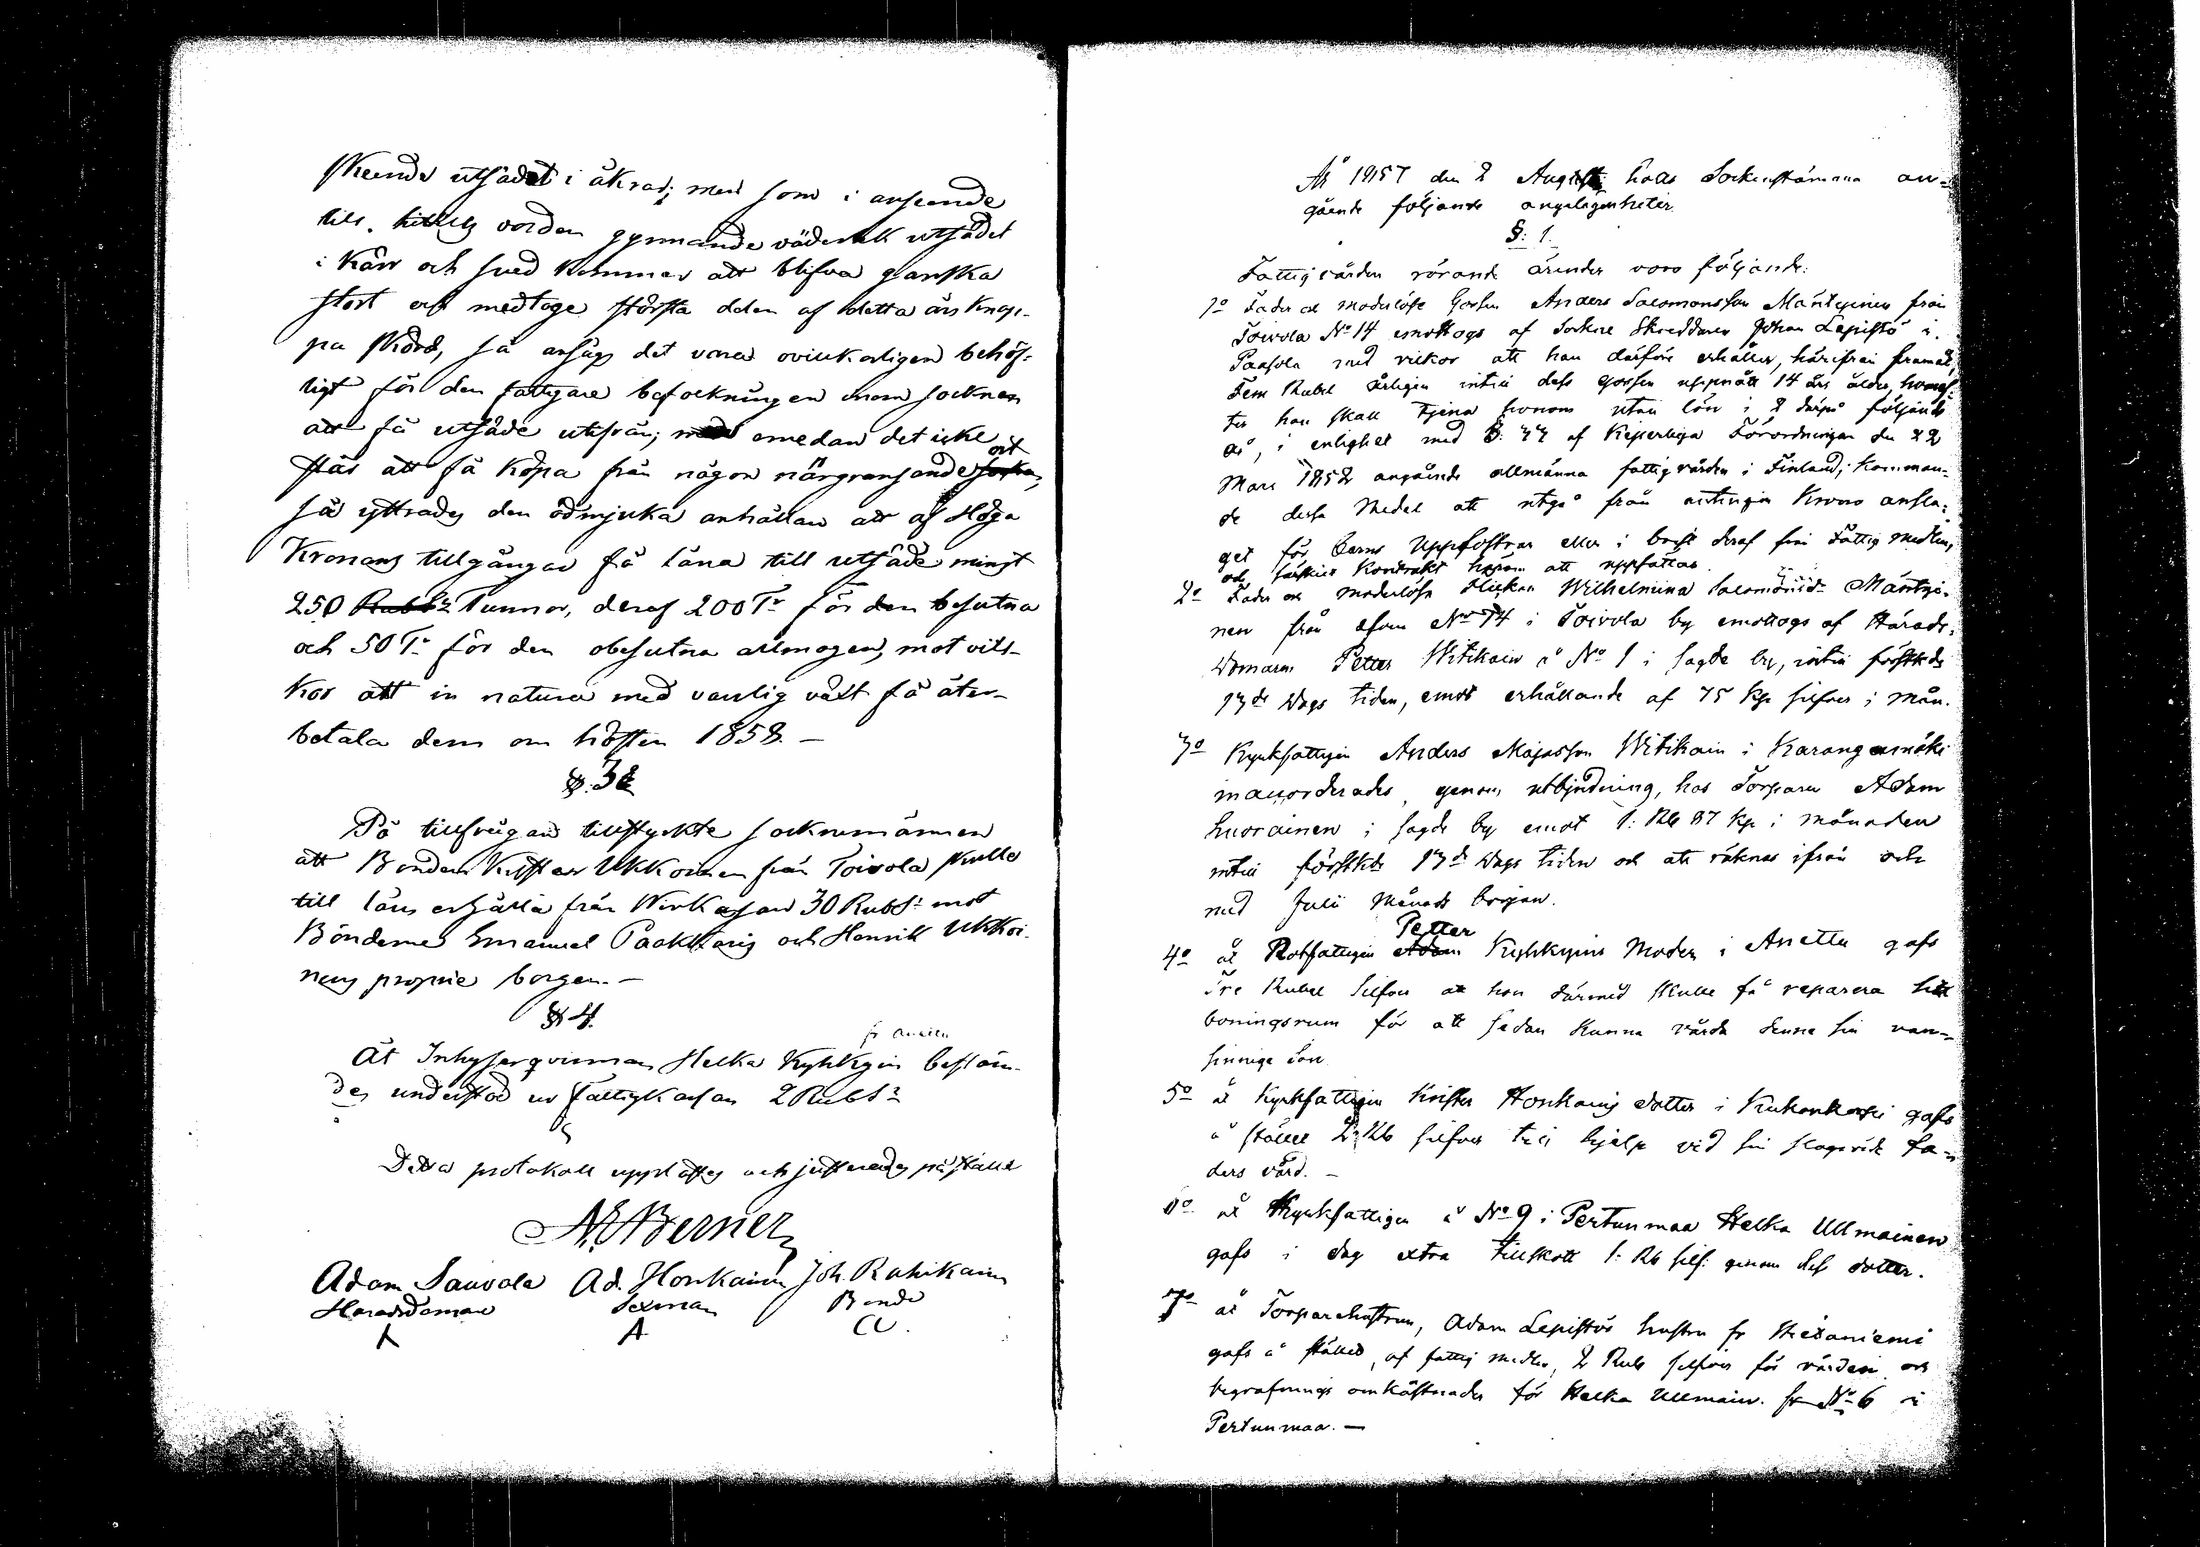 skeende utsädet i åkrar; men som i anseende
till hittills vorden gynnande väderlek utsädet
i kärr och sved kommer att blifva ganska
stort och medtoge största delen af detta års knap-
pa skörd, så ansågs det vara ovilkorligen behöf-
ligt för den fattigare befolkningen inom socknen
att få utsäde utifrån; emedan det icke
står att få köpa från någon närgränsande ort
så yttrades den ödmjuka anhållan att af Höga
Kronans tillgångar få låna till utsäde minst
250 Tunnor, deraf 200 Tr för den besutna
och 50 Tr för den obesutna allmogen, mot vill-
kor att in natura med vanlig växt få åter-
betala dem om hösten 1858. —
§. 3
På tillfrågan tillstyrkte socknemännen
att Bonden Krister Ukkoinen från Toivola skulle
till låns erhålla från Wirkassan 30 Rub S: mot
Bönderne Emanuel Paakkaris och Henrik Ukkoi-
nens proprie borgen. —
§ 4.
fr Anettu
Åt Inhysesqvinnan Helka Kyhkyin bestäm-
des understöd ur fattigkassan 2 Rub S:
Detta protokoll upplästes och justerades på stället
A. E. Berner
Adam Sauvala Ad. Honkainen Joh. Ruhikain
Häradsdomare Sexman Bonde
A
År 1857 den 2 Augusti hölls Sockenstämma an-
gående följande angelägenheter.
§: 1.
Fattigvården rörande ärender voro följande:
1o Fader och moderlöse Gossen Anders Salomonsson Mäntyinen från
Toivola No 14 emottogs af Sockne Skreddaren Johan Lepistö i
Paasola med vilkor att han derföre erhåller, härifrån framåt,
Fem Rubel årligen intill dess gossen uppnått 14 års ålder, hvaref-
ter han skall tjena honom utan lön i 2 därpå följande
år, i enlighet med §. 77 af Kejserliga Förordningen den 22
Mars 1852 angående allmänna fattigvården i Finland; komman-
de dessa medel att utgå från antingen Krono ansla-
get för barns Uppfostran eller i brist deraf från Fattig medlen,
och särskilt Kontrakt härom att uppsättas.
2o Fader och moderlösa Flickan Wilhelmina Salomonsd: Mäntyi-
nen från No 14 i Toivola by emottogs af Härads-
domaren Petter Witikain å No 1 i sagde by, intill förstkde
13de Dags tiden, emot erhållande af 75 Kp silfver i mån.
3o Kyrkfattigen Anders Majasson Witikain i Karangamäki
inackorderades, genom utbjudning, hos Torparen Adam
Suorainen i sagde by emot 1: Rb 87 Kp i månaden
intill förstkde 13de Dags tiden och att räknas ifrån och
med Juli Månads början.
Petter
4o åt Rotfattigen Adam Kyhkyins Moder i Anettu gafs
Tre Rubel Silfver att hon därmed skulle få reparera sitt
boningsrum för att sedan kunna vårda denne sin van-
sinnige Son
5o åt Kyrkfattigen Krister Honkains dotter i Kuhankoski gafs
å stället 2 Rb silfver till hjelp vid sin slagrörde fa-
ders vård. —
6o åt Kyrkfattigen å No 9 i Pertunmaa Helka Ullmainen
gafs i dag extra tillskott 1: Rb silf: genom dess dotter.
7o åt Torparehustrun, Adam Lepistös hustru fr Hietaniemi
gafs å stället, af fattig medlen, 2 Rub silfver för vården och
begrafnings omkostnader för Helka Ullmain. fr No 6 i
Pertunmaa. —